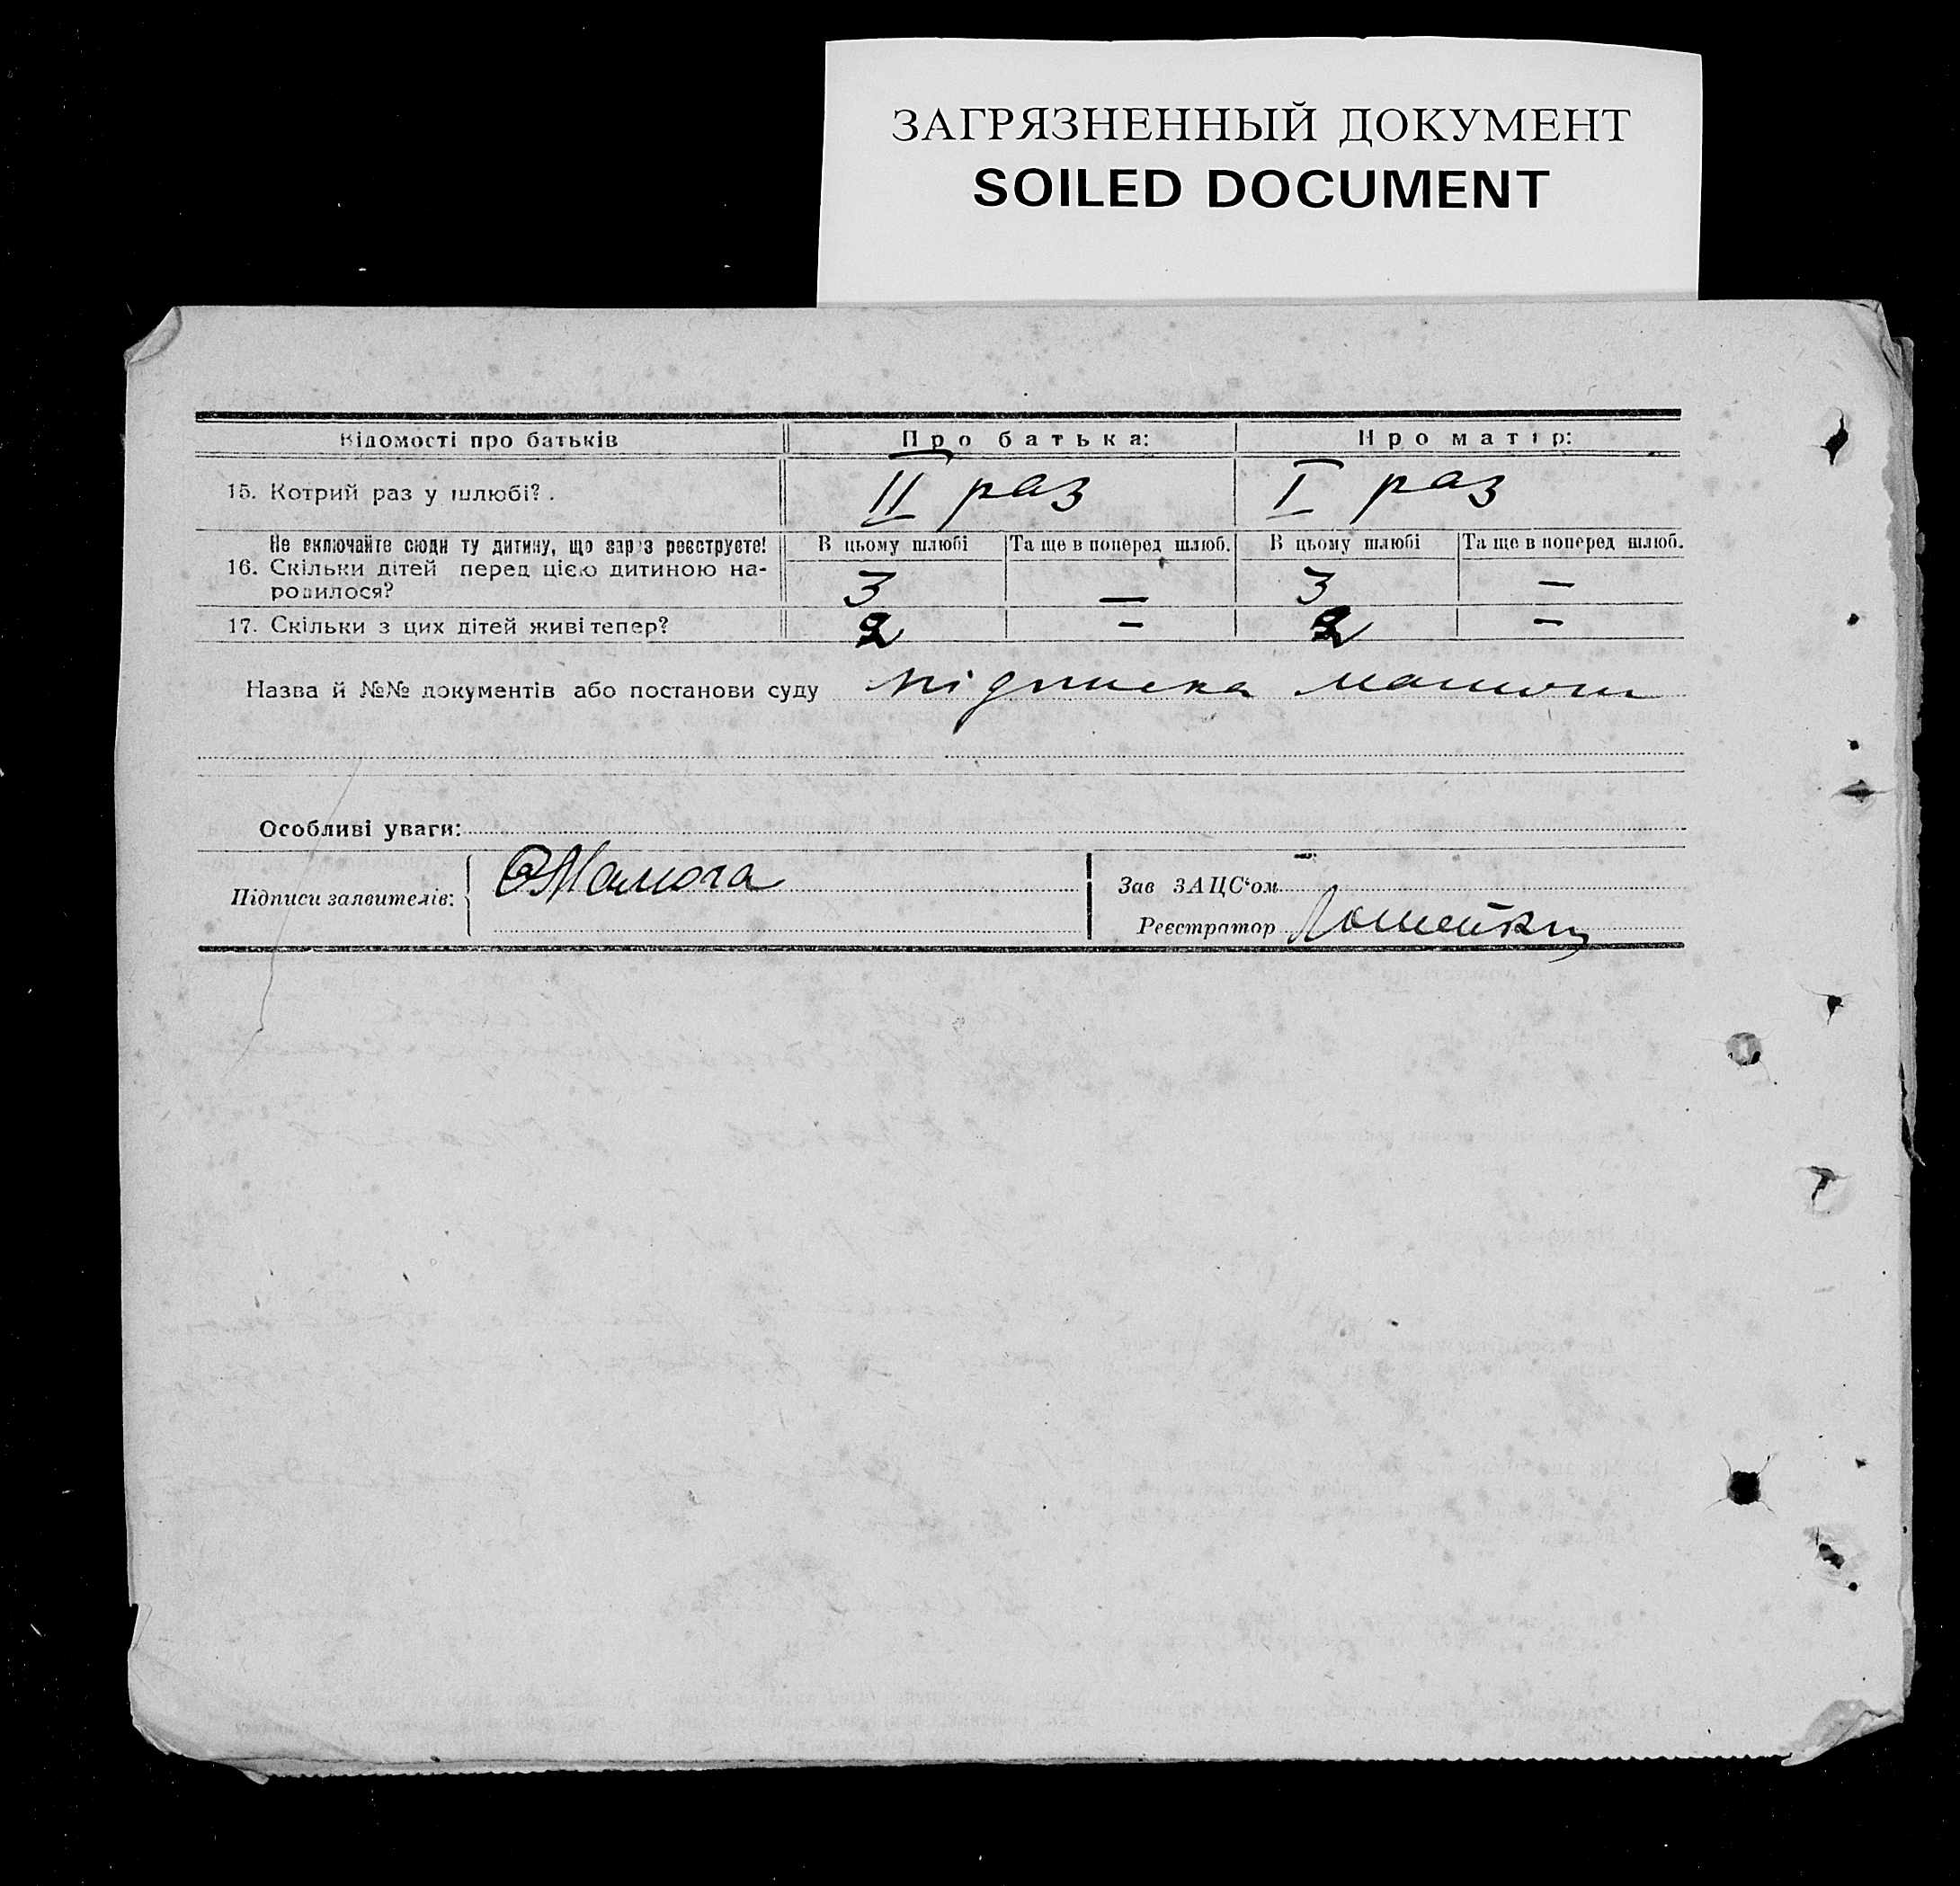 ЗАГРЯЗНЕННЫЙ ДОКУМЕНТ
SOILED DOCUMENT
Відомості про батьків Про батька: Про матір:
15. Котрий раз у шлюбі? . II раз I раз
Не включайте сюди ту дитину, що зараз реєструєте! В цьому шлюбі Та ще в поперед шлюб. В цьому шлюбі Та ще в поперед шлюб.
16. Скільки дітей перед цією дитиною на-
родилося? 3 — 3 —
17. Скільки з цих дітей живі тепер? 2 - 2 -
Назва й №№ документів або постанови суду підписка
Особливі уваги:
Підписи заявителів:
Зав ЗАЦС‘ом
Реєстратор